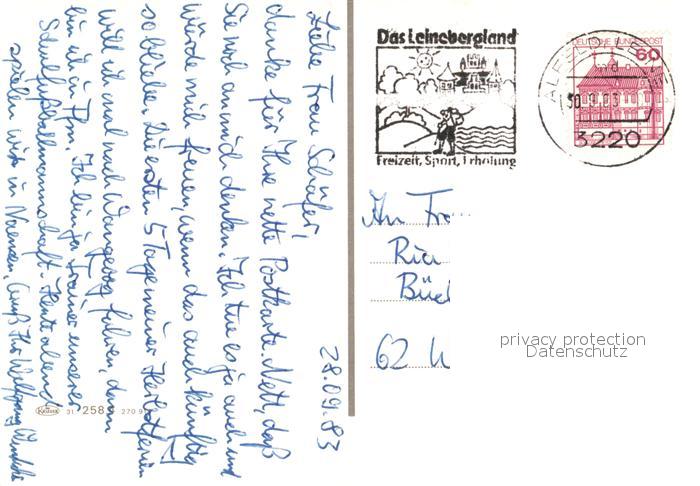 28.09.83
Liebe Frau Schäfer,
danke für Ihre nette Postkarte. Nett, daß
Sie noch an mich denken. Ich tue es ja auch und
würde mich freuen, wenn das auch künftig
so bliebe. Die ersten 5 Tage meiner Herbstferien
will ich mal nach Wangeroog fahren, dann
bin ich in
Ich bin ja Trainer unserer
Schulfußballmannschaft. Heute abend
spielen wir in Gruß Ihr Wolfgang
Das Leinebergland
Freizeit, Sport, Erholung
DEUTSCHE BUNDESPOST
60
ALFELD
30.9.83
3220
An Fr
Ria
Büd
62 W
privacy protection
Datenschutz
Krüger 31 258 270 9